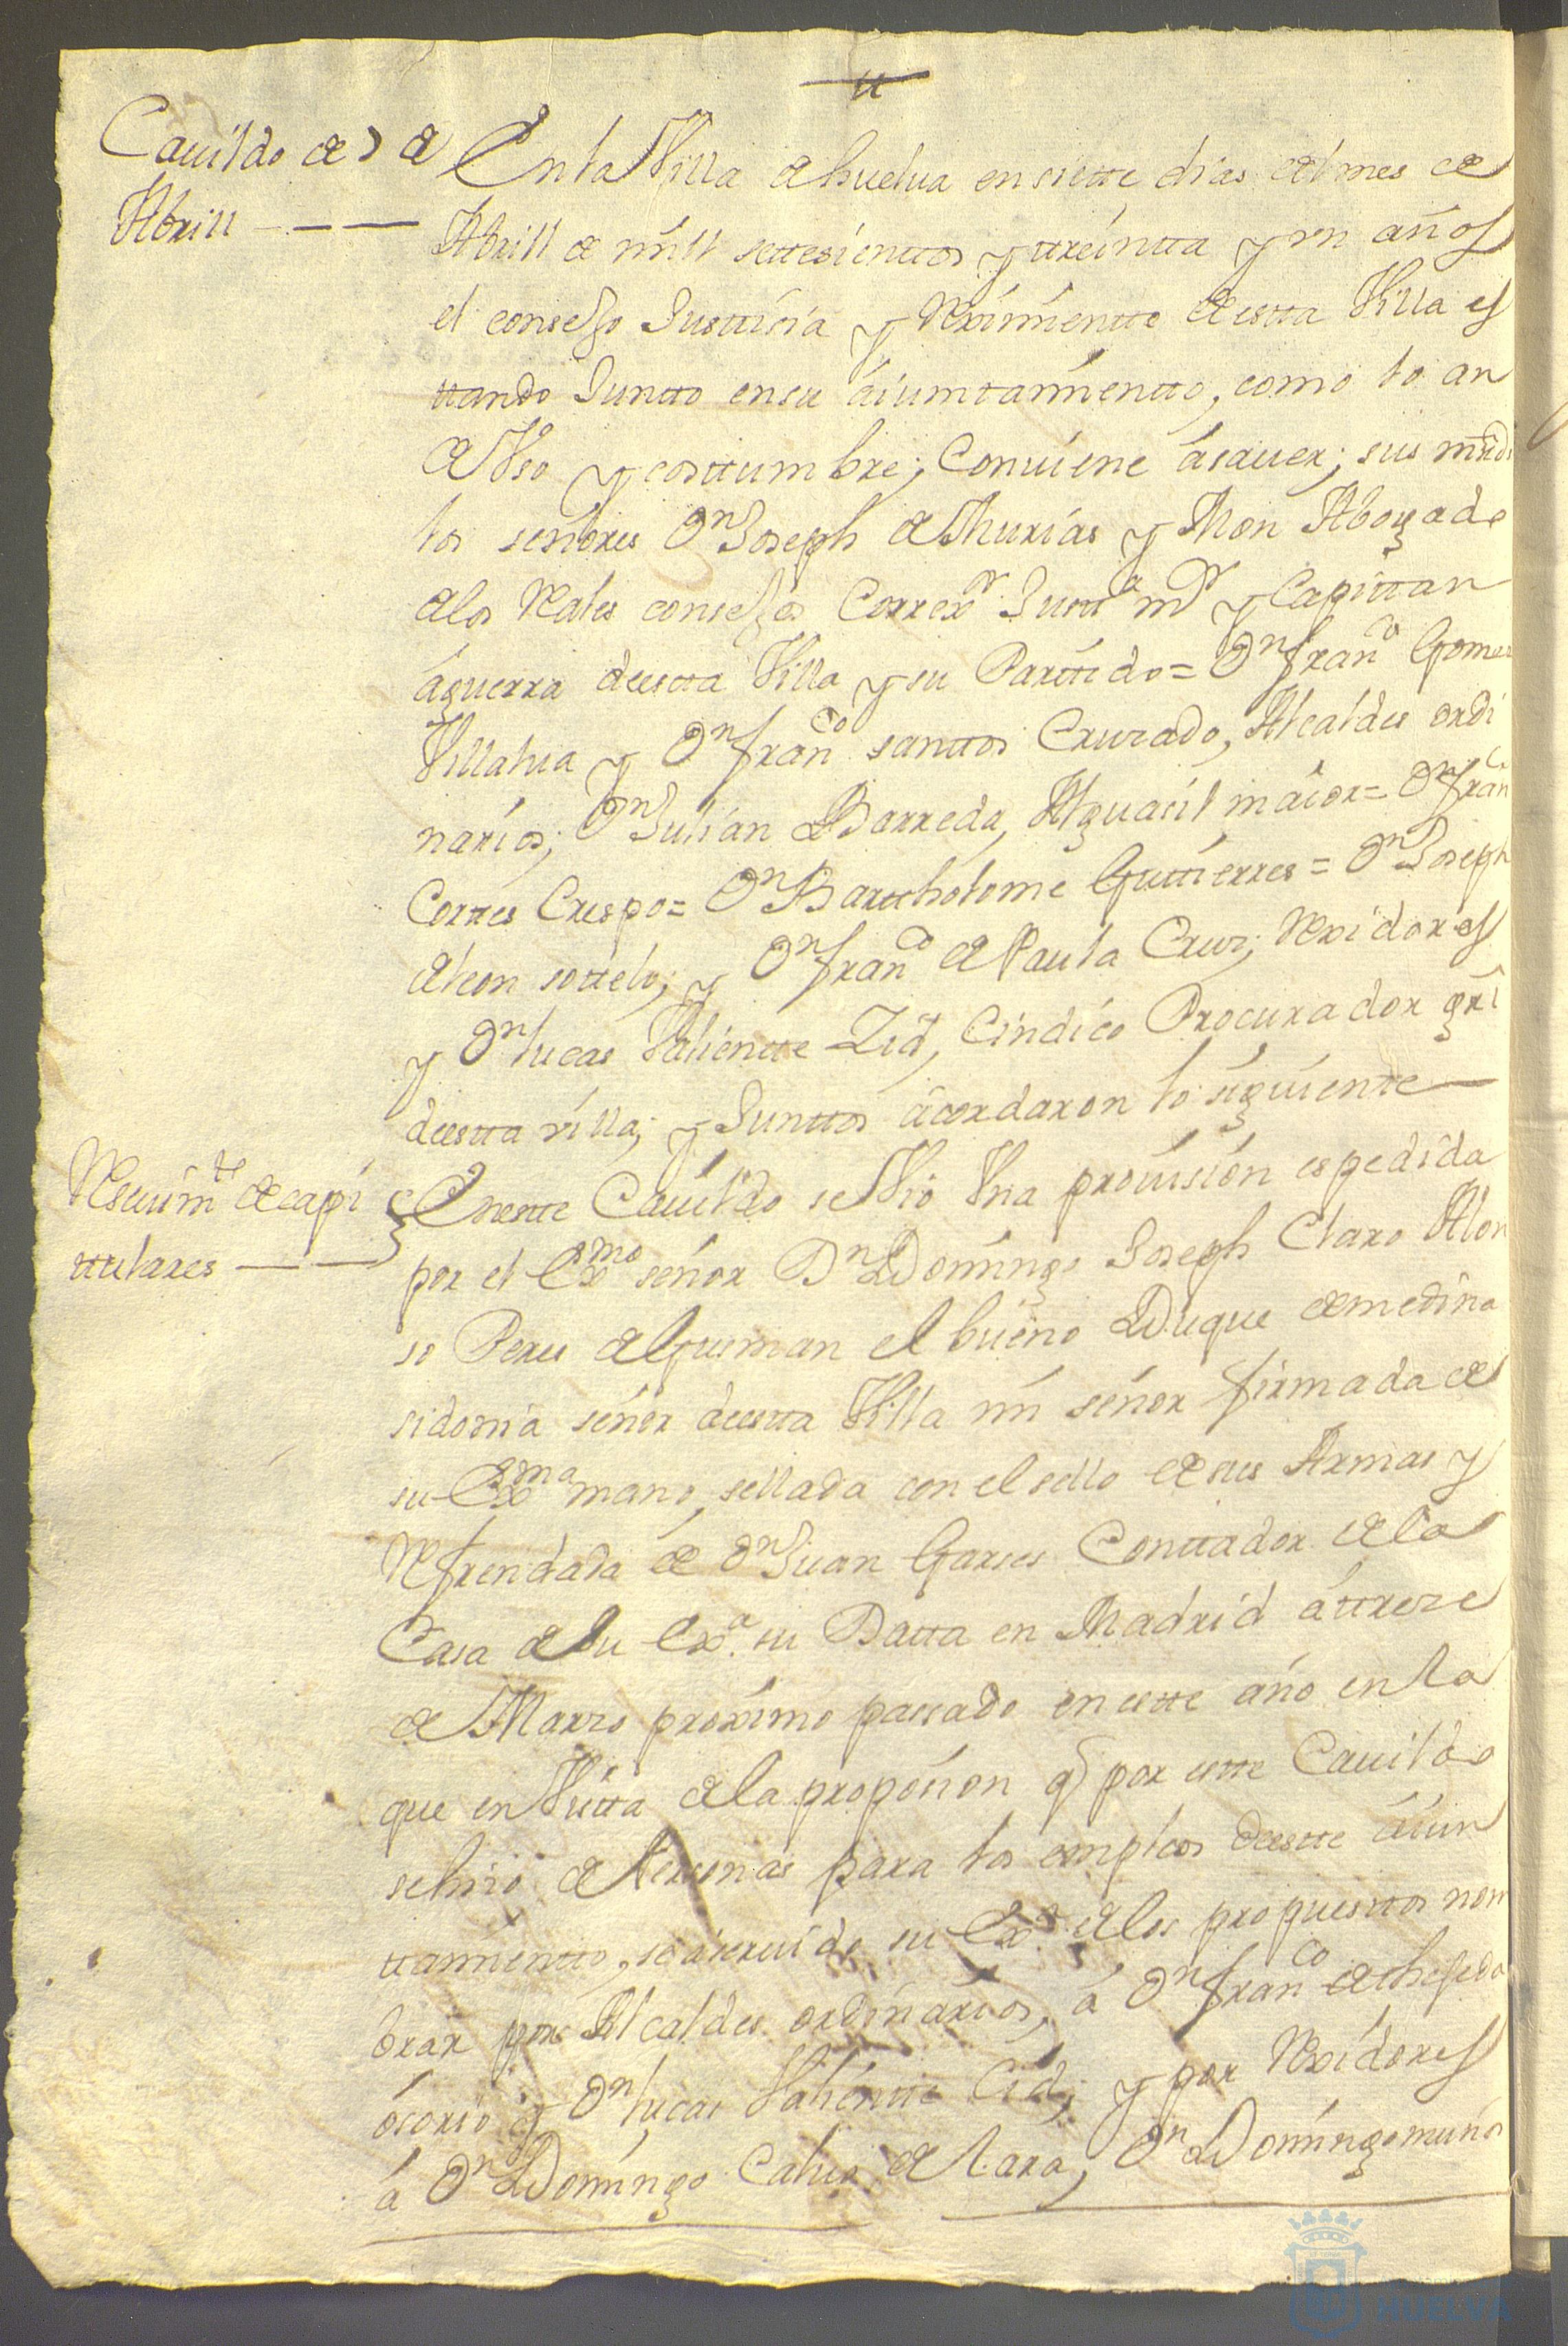 Cauildo de 7 de
Abrill
En la Villa de huelua en siette dias del mes de
Abrill de mill settesienttos y ttreintta y un años
el consejo Justtisia y Reximientto de estta Villa es
ttando Juntto en su aiumtamientto, como lo an
de Vso y costtumbre; Conuiene á sauer; sus mrds
los señores Dn Joseph de Murias y Mon Abogado
de los Reales consejos Correxr Justta mr y Capittan
á guerra de estta Villa y su Parttido = Dn franco Gomes
Villalua y Dn franco santtos Crusado, Alcaldes ordi
narios; Dn Julian Barreda, Alguasil maior = Dn franco
Corttes Crespo = Dn Barttholome Guttierres = Dn Joseph
de leon sottelo; y Dn franco de Paula Crus; Rexidores
y Dn lucas Valientte Zid, Cindico Procurador grl
de estta villa; y Junttos acordaron lo siguientte
Resiuimto de capi
ttulares
En estte Cauildo se Vio Vna prouision espedida
por el Exmo señor Dn Domingo Joseph Claro Alon
so Peres de Gusman el bueno Duque de medina
sidonia señor de estta Villa mi señor firmada de
su Exma mano, sellada con el sello de sus Armas y
Refrendada de Dn Juan Garses Conttador de la
Casa de su Exa. su Datta en Madrid á ttrese
de Marzo proximo passado en estte año en la
que en Vistta de la proposion q por estte Cauildo
se hiso de Personas para los empleos de estte aiun
ttamientto, se á seruido su Exa. de los propuesttos nom
brar por Alcaldes ordinarios, á Dn franco de thejeda
ósorio y Dn lucas Valientte Cid; y por Rexidores
á Dn Domingo Caluo de Lara, Dn Domingo muño
HUELVA